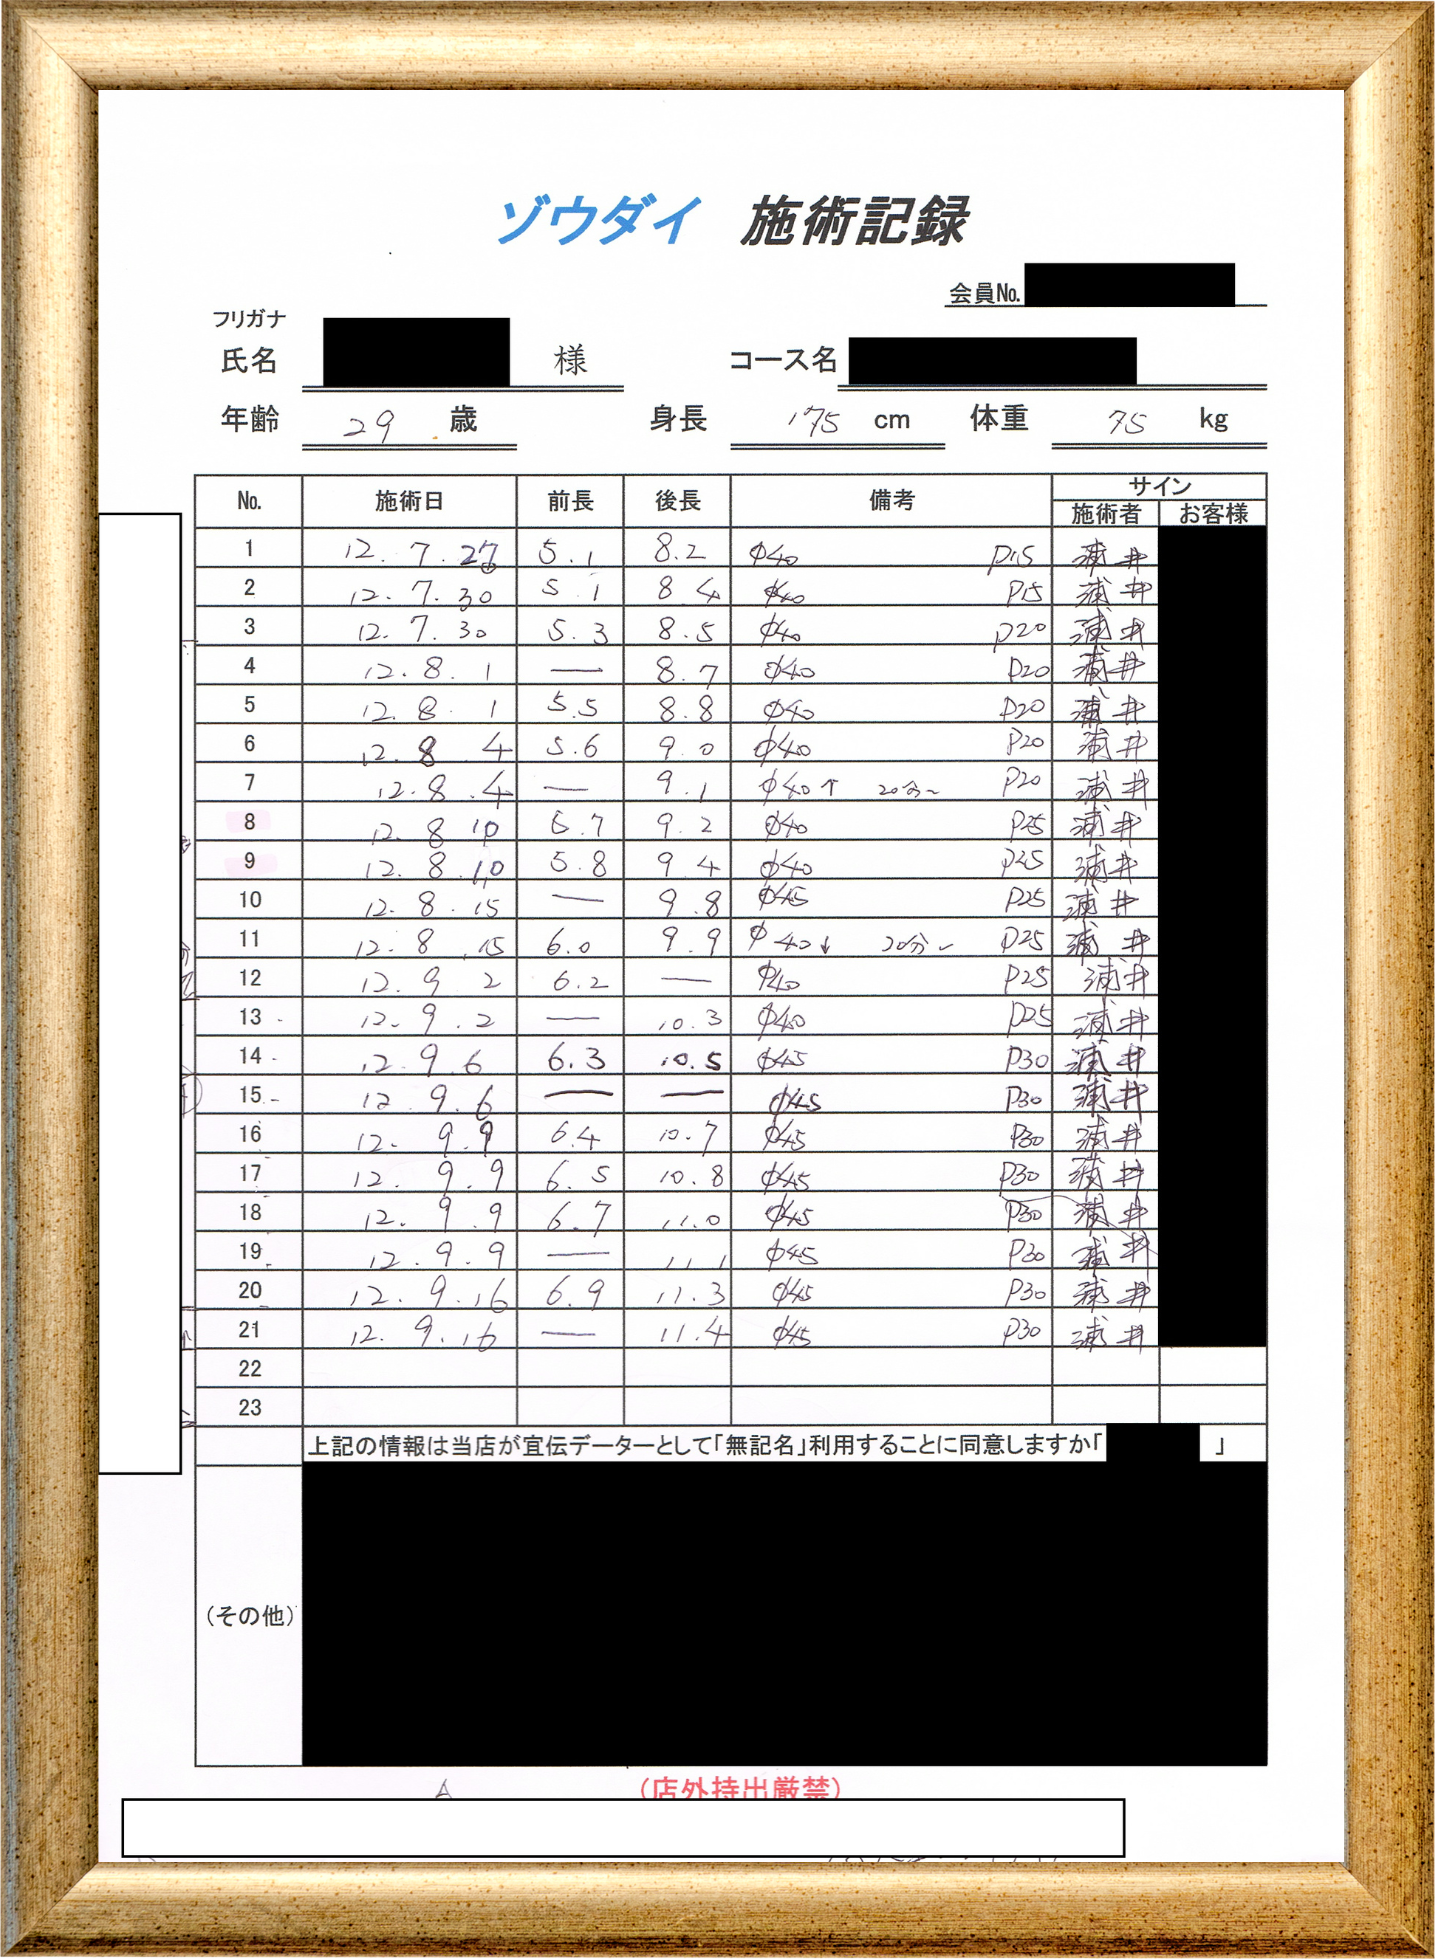 ゾウダイ 施術記録
会員No.
フリガナ
氏名 様 コース名
年齢 29 歳 身長 175 cm 体重 75 kg
No. 施術日 前長 後長 備考 サイン
施術者 お客様
1 12.7.27 5.1 8.2 φ40 P15 浦井
2 12.7.30 5.1 8.4 φ40 P15 浦井
3 12.7.30 5.3 8.5 φ40 P20 浦井
4 12.8.1 — 8.7 φ40 P20 浦井
5 12.8.1 5.5 8.8 φ40 P20 浦井
6 12.8.4 5.6 9.0 φ40 P20 浦井
7 12.8.4 — 9.1 φ40↑ 20分~ P20 浦井
8 12.8.10 5.7 9.2 φ40 P25 浦井
9 12.8.10 5.8 9.4 φ40 P25 浦井
10 12.8.15 — 9.8 φ45 P25 浦井
11 12.8.15 6.0 9.9 φ40↓ 20分~ P25 浦井
12 12.9.2 6.2 — φ40 P25 浦井
13 12.9.2 — 10.3 φ40 P25 浦井
14 12.9.6 6.3 10.5 φ45 P30 浦井
15 12.9.6 — — φ45 P30 浦井
16 12.9.9 6.4 10.7 φ45 P30 浦井
17 12.9.9 6.5 10.8 φ45 P30 浦井
18 12.9.9 6.7 11.0 φ45 P30 浦井
19 12.9.9 — 11.1 φ45 P30 浦井
20 12.9.16 6.9 11.3 φ45 P30 浦井
21 12.9.16 — 11.4 φ45 P30 浦井
22
23
上記の情報は当店が宣伝データーとして「無記名」利用することに同意しますか「 」
(その他)
(店外持出厳禁)